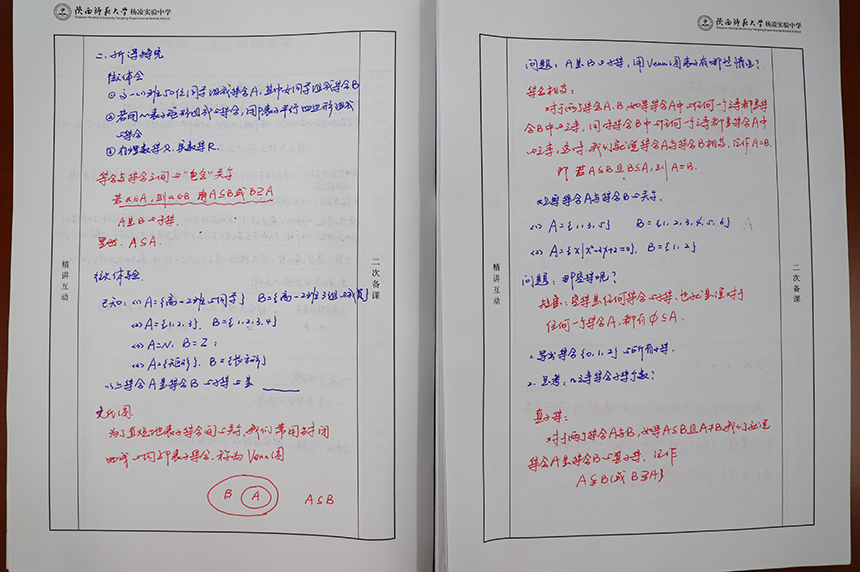 陕西师范大学杨凌实验中学
二、新课探究
做体会
① 高一(1)班50位同学组成集合A，其中女同学组成集合B
② 若用A表示矩形组成的集合，用B表示平行四边形组成
的集合
③ 有理数集Q，实数集R.
集合与集合之间的"包含"关系
若a∈A，则a∈B 有A⊆B或B⊇A
A是B的子集.
A⊆A.
体验.
已知：(1) A={高一2班的同学} B={高一2班3组的成员}
(2) A={1,2,3}, B={1,2,3,4}
(3) A=N, B=Z;
(4) A={矩形}, B={长方形}
以上集合A是集合B的子集的是
韦氏图
为了直观地表示集合间的关系，我们常用封闭
曲线的内部表示集合，称为Venn图
B A A⊆B
精讲互动
二次备课
陕西师范大学杨凌实验中学
问题：A是B的子集，用Venn图表示有哪些情况？
集合相等：
对于两个集合A、B，如果集合A中的任何一个元素都是集
合B中的元素，同时集合B中的任何一个元素都是集合A中
的元素，这时，我们就说集合A与集合B相等，记作A=B.
即 若A⊆B且B⊆A，则A=B.
观察集合A与集合B的关系.
(1) A={1,3,5} B={1,2,3,4,5,6}
(2) A={x|x²-3x+2=0}, B={1,2}
问题：那空集呢？
规定：空集是任何集合的子集，也就是说对于
任何一个集合A，都有∅⊆A.
1. 写出集合{0,1,2}的所有子集.
2. 思考：n元素集合子集个数？
真子集：
对于两个集合A与B，如果A⊆B且A≠B，我们就说
集合A是集合B的真子集，记作
A⫋B(或B⫌A)
精讲互动
二次备课